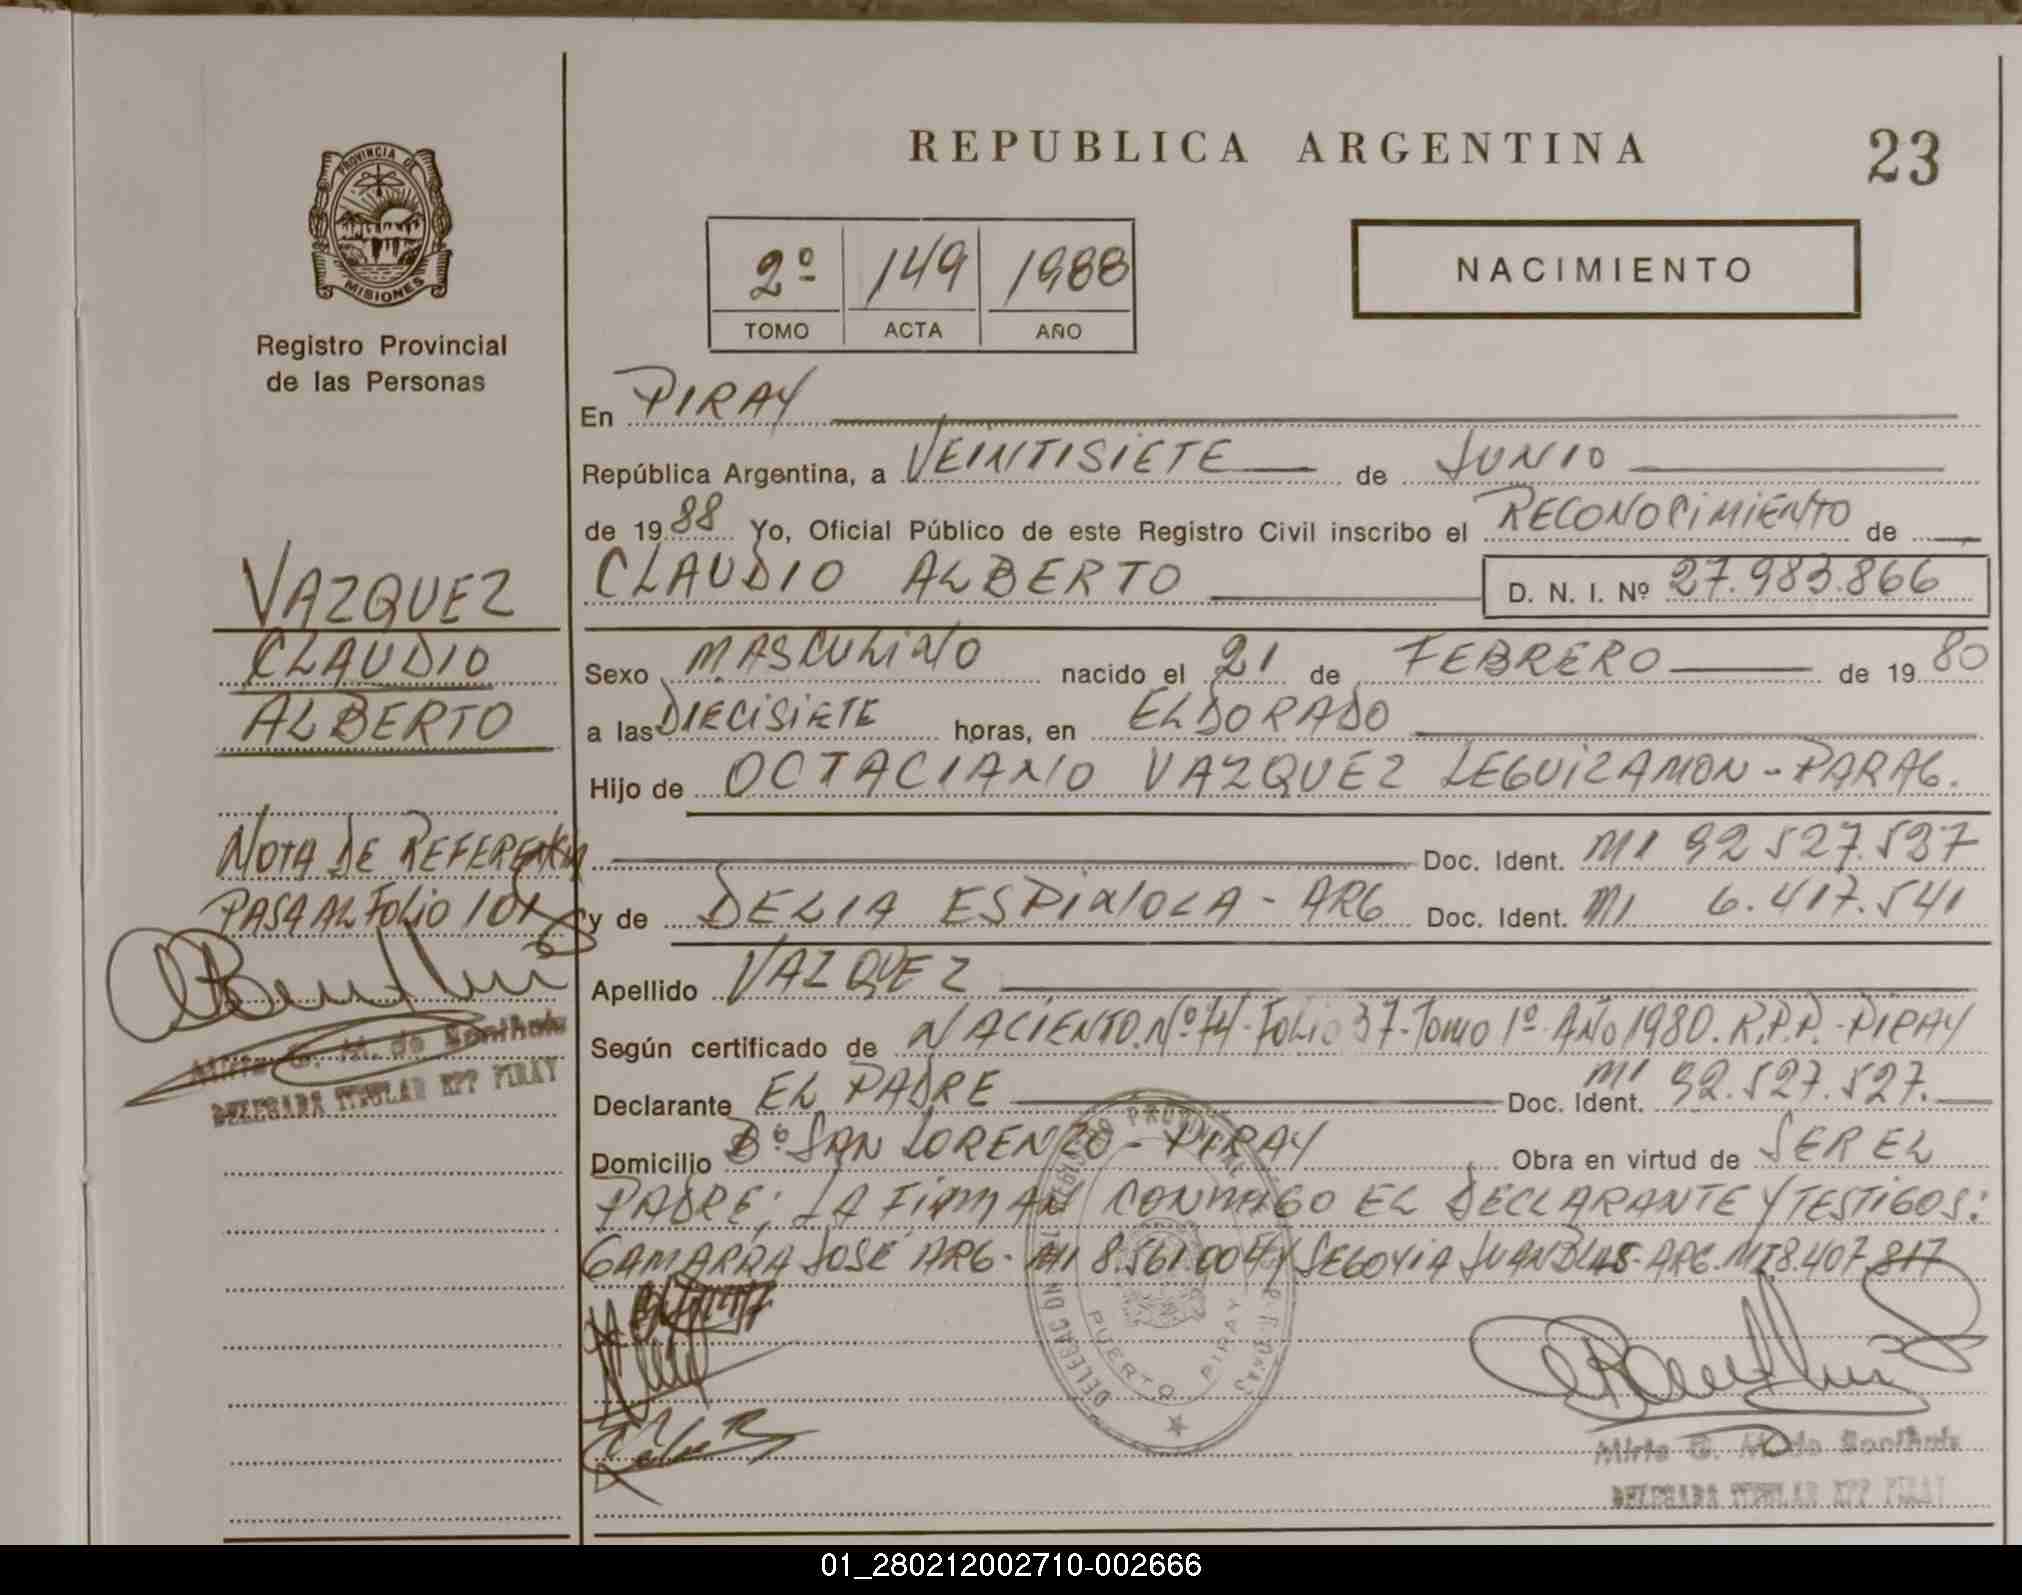 REPUBLICA ARGENTINA
23
PROVINCIA DE
MISIONES
Registro Provincial
de las Personas
2º 149 1988
TOMO ACTA AÑO
NACIMIENTO
En PIRAY
República Argentina, a VEINTISIETE de JUNIO
de 1988 Yo, Oficial Público de este Registro Civil inscribo el RECONOCIMIENTO de
CLAUDIO ALBERTO D. N. I. Nº 27.983.866
Sexo MASCULINO nacido el 21 de FEBRERO de 1980
a las DIECISIETE horas, en ELDORADO
Hijo de OCTACIANO VAZQUEZ LEGUIZAMON - PARAG.
Doc. Ident. MI 92 527.527
y de DELIA ESPINOLA - ARG Doc. Ident. MI 6.417.541
Apellido VAZQUEZ
Según certificado de NACIENTO. Nº 74 - FOLIO 37 - TOMO 1º AÑO 1980. R.P.P. - PIRAY
Declarante EL PADRE Doc. Ident. MI 92.527.527.
Domicilio Bº SAN LORENZO - PIRAY Obra en virtud de SER EL
PADRE; LA FIRMAN CONMIGO EL DECLARANTE Y TESTIGOS:
GAMARRA JOSÉ ARG - MI 8.561.004 Y SEGOVIA JUAN BLAS - ARG. MI 8.407.817
VAZQUEZ
CLAUDIO
ALBERTO
NOTA DE REFERENCIA
PASA AL FOLIO 101
DELEGADA TITULAR RPP PIRAY
PUERTO PIRAY
DELEGADA TITULAR RPP PIRAY
01_280212002710-002666